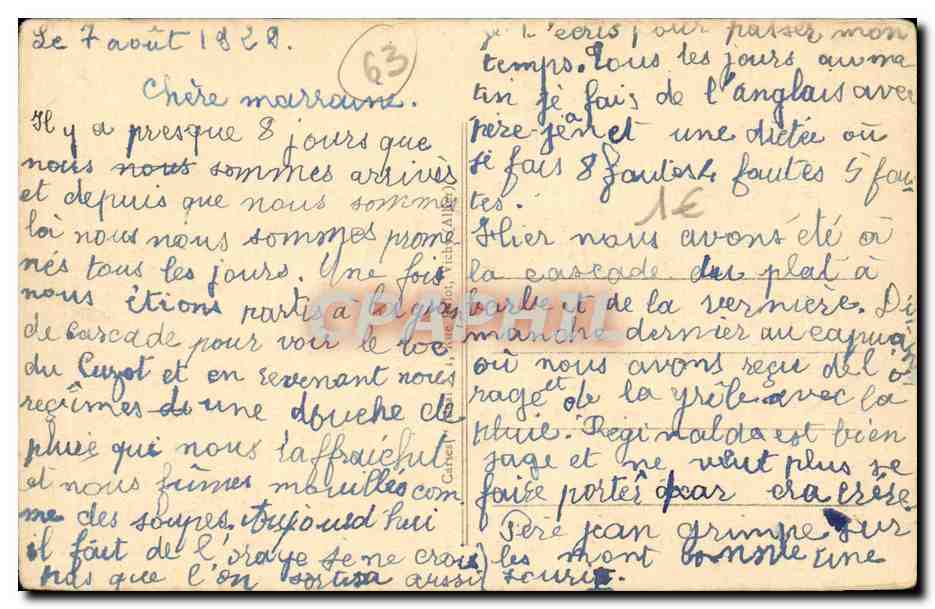 Le 7 août 1929.
63
Chère marraine.
Il y a presque 8 jours que
nous nous sommes arrivés
et depuis que nous sommes
là nous nous sommes prome
nés tous les jours. Une fois
nous étions partis à la gran
de cascade pour voir le roc
du Cuzot et en revenant nous
reçûmes de une douche de
pluie qui nous raffraichit
et nous fûmes mouillés com
me des soupes. Aujourd'hui
il fait de l'orage je ne crois
pas que l'on sortira aussi
je t'écris pour passer mon
temps. Tous les jours au ma
tin je fais de l'anglais avec
père-jean et une dictée où
je fais 8 fautes 4 fautes 5 fau
tes.
1€
Hier nous avons été à
la cascade du plat à
barbe et de la vernière. Di
manche dernier au capucin
où nous avons reçu de l'o
rage et de la grêle avec la
pluie. Reginalda est bien
sage et ne veut plus se
faire porter par
Père jean grimpe sur
les mont comme une
souris.
CPAPHIL